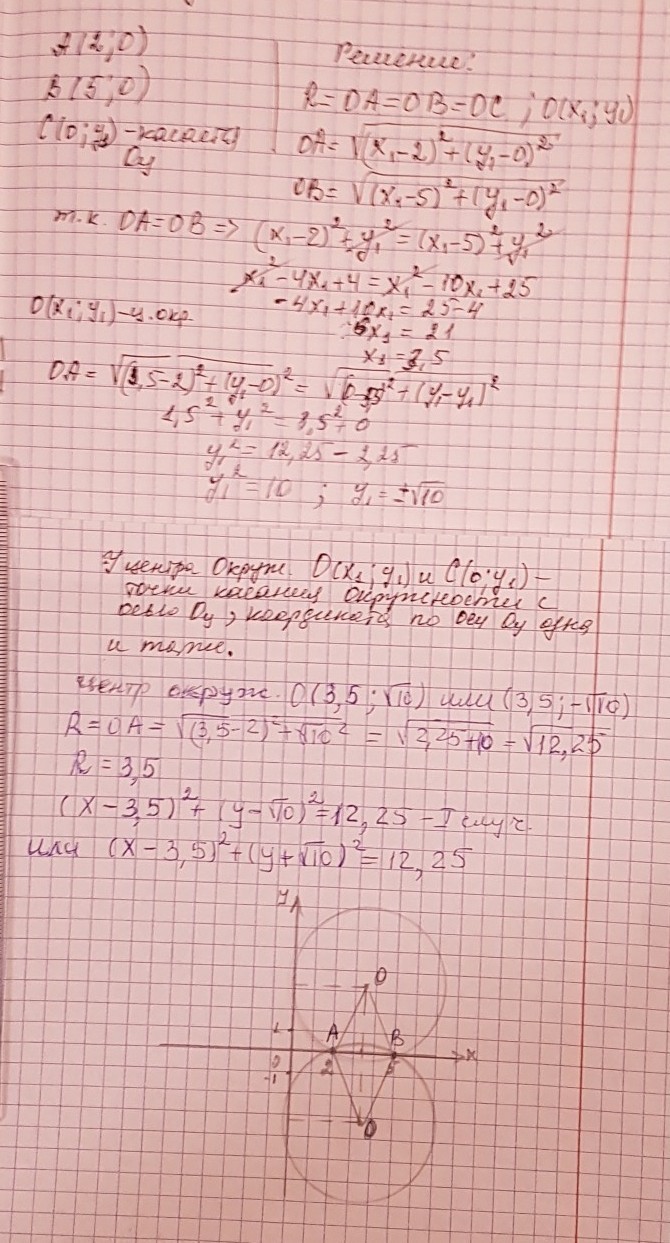 A(2;0)
B(5;0)
C(0;y₁)-касается
Oy
Решение:
R=OA=OB=OC ; O(x₁;y₁)
OA=√(x₁-2)²+(y₁-0)²
OB=√(x₁-5)²+(y₁-0)²
т.к. OA=OB=> (x₁-2)²+y₁²=(x₁-5)²+y₁²
x₁²-4x₁+4=x₁²-10x₁+25
-4x₁+10x₁=25-4
O(x₁;y₁)-ц.окр.
6x₁=21
x₁=3,5
OA=√(3,5-2)²+(y₁-0)²=√(0-3,5)²+(y₁-y₁)²
1,5²+y₁²=3,5²+0
y₁²=12,25-2,25
y₁²=10 ; y₁=±√10
У центра Окруж. O(x₁;y₁) и C(0;y₁)-
точки касания окружности с
осью Oy, координата по оси Oy одна
и та же.
центр окруж. O(3,5;√10) или (3,5;-√10)
R=OA=√(3,5-2)²+√10² = √2,25+10 = √12,25
R=3,5
(x-3,5)²+(y-√10)²=12,25-I случ.
или (x-3,5)²+(y+√10)²=12,25
y
O
1
A
B
x
0
2
5
-1
O